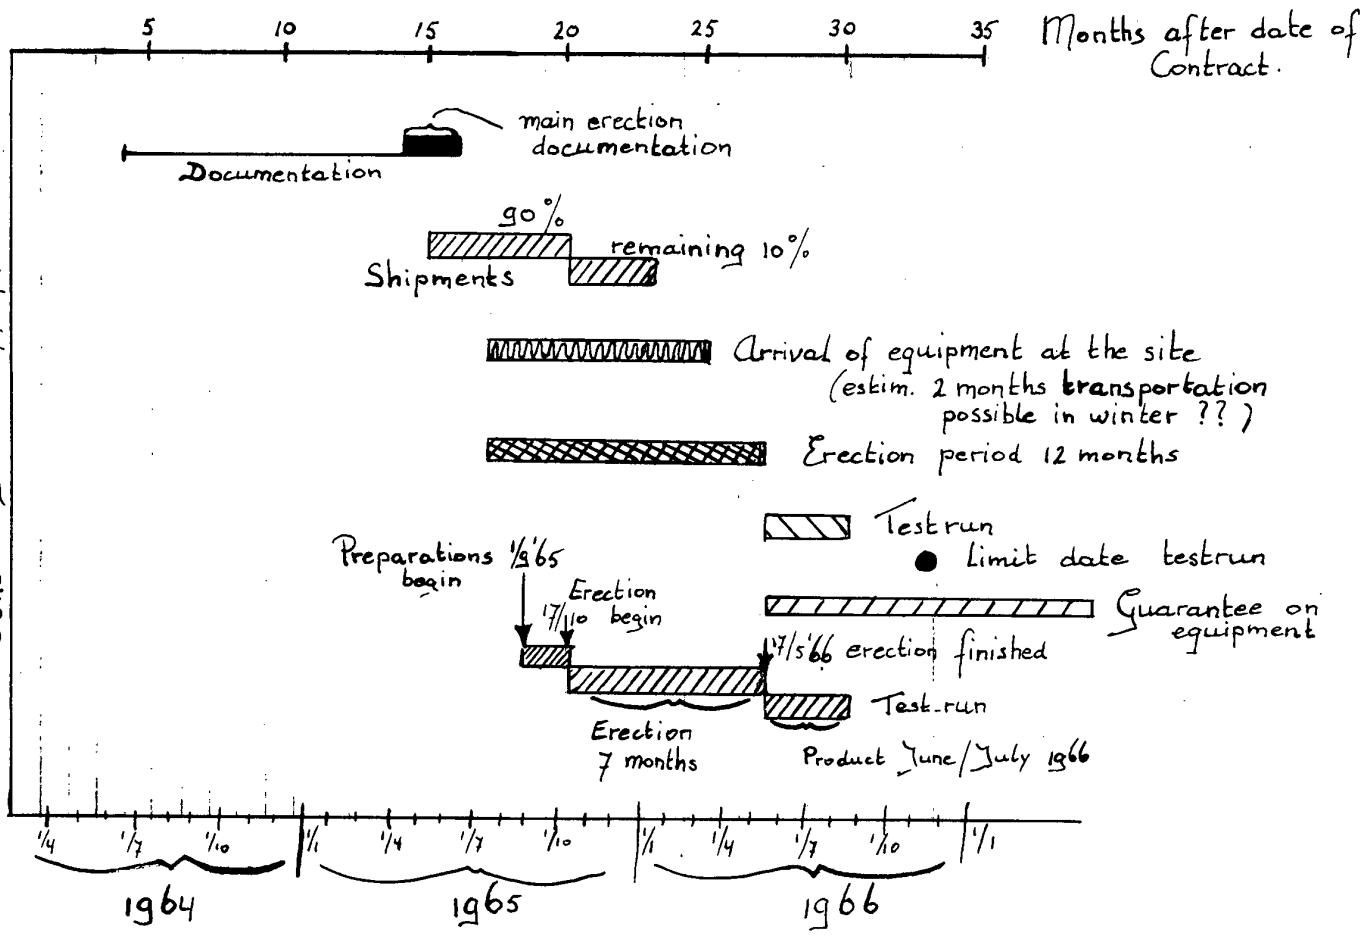 5 10 15 20 25 30 35 Months after date of
Contract.
main erection
documentation
Documentation
90%
remaining 10%
Shipments
Arrival of equipment at the site
(estim. 2 months transportation
possible in winter ??)
Erection period 12 months
Testrun
Preparations 1/9'65
begin
Limit date testrun
Erection
17/10 begin
Guarantee on
equipment
17/5'66 erection finished
Test-run
Erection
7 months
Product June/July 1966
1/4 1/7 1/10 1/1 1/4 1/7 1/10 1/1 1/4 1/7 1/10 1/1
1964 1965 1966